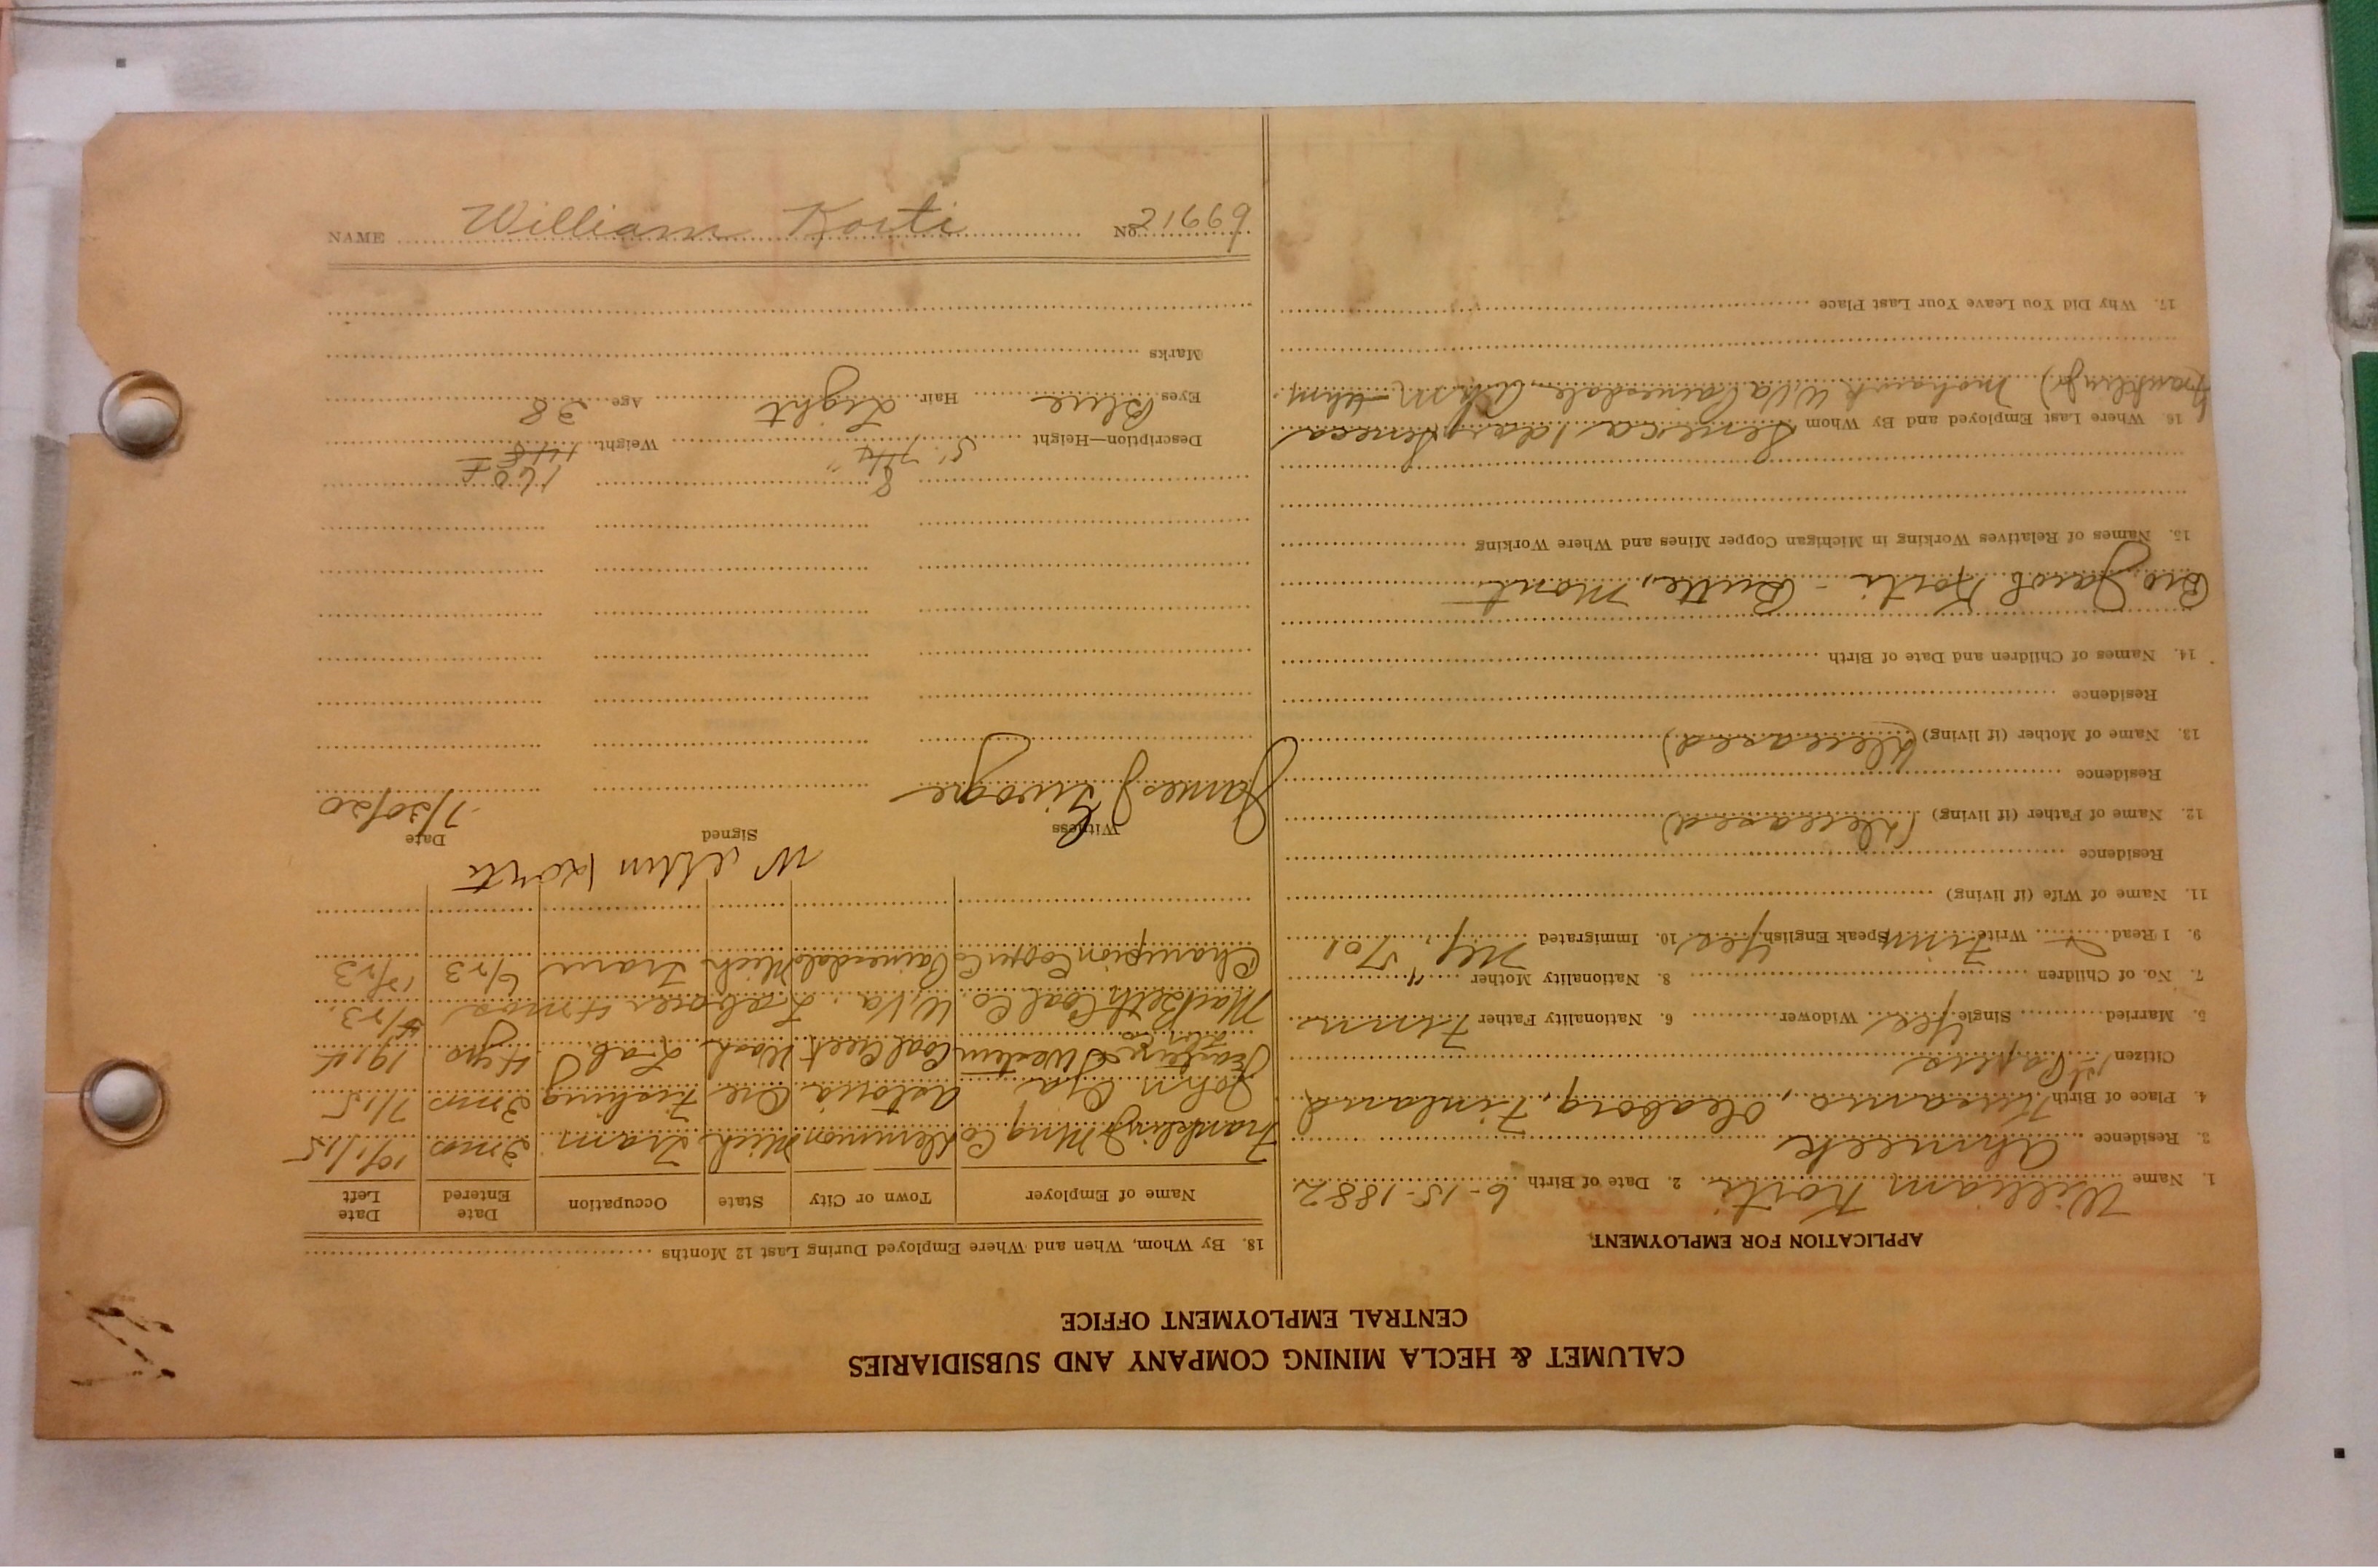 CALUMET & HECLA MINING COMPANY AND SUBSIDIARIES
CENTRAL EMPLOYMENT OFFICE
APPLICATION FOR EMPLOYMENT
1. Name William Korti 2. Date of Birth 6-15-1882
3. Residence Ahmeek
4. Place of Birth Kuusamo, Oleaborg, Finland
Citizen 1st Papers
5. Married Single Yes Widower 6. Nationality Father Finn
7. No. of Children 8. Nationality Mother "
9. I Read Write Finn Speak English Yes 10. Immigrated
11. Name of Wife (if living)
Residence
12. Name of Father (if living) (deceased)
Residence
13. Name of Mother (if living) (deceased)
Residence
14. Names of Children and Date of Birth
Bro Jacob Korti - Butte, Mont
15. Names of Relatives Working in Michigan Copper Mines and Where Working
16. Where Last Employed and By Whom Seneca 1 day Seneca
Franklin Jr) Mohawk W.Va Painesdale
17. Why Did You Leave Your Last Place
18. By Whom, When and Where Employed During Last 12 Months
Name of Employer Town or City State Occupation Date Entered Date Left
Franklin Jr Mng Co Demmon Mich Tram 3 mos 10/1/15
John Oja Astoria Ore Fishing 3 mos 7/1/15
Western Coal Creek Wash Lab. 4 yrs 1914
MacBeth Coal Co. W.Va. Laborer 4 mos /23.
Champion Copper Co Painesdale Mich Tram 6/23 12/23
Witness Signed Date
James J Willim Korti 7/20/20
8 160
Description—Height 5' 7½" Weight 148
Eyes Blue Hair Light Age 38
Marks
NAME William Korti No. 21669